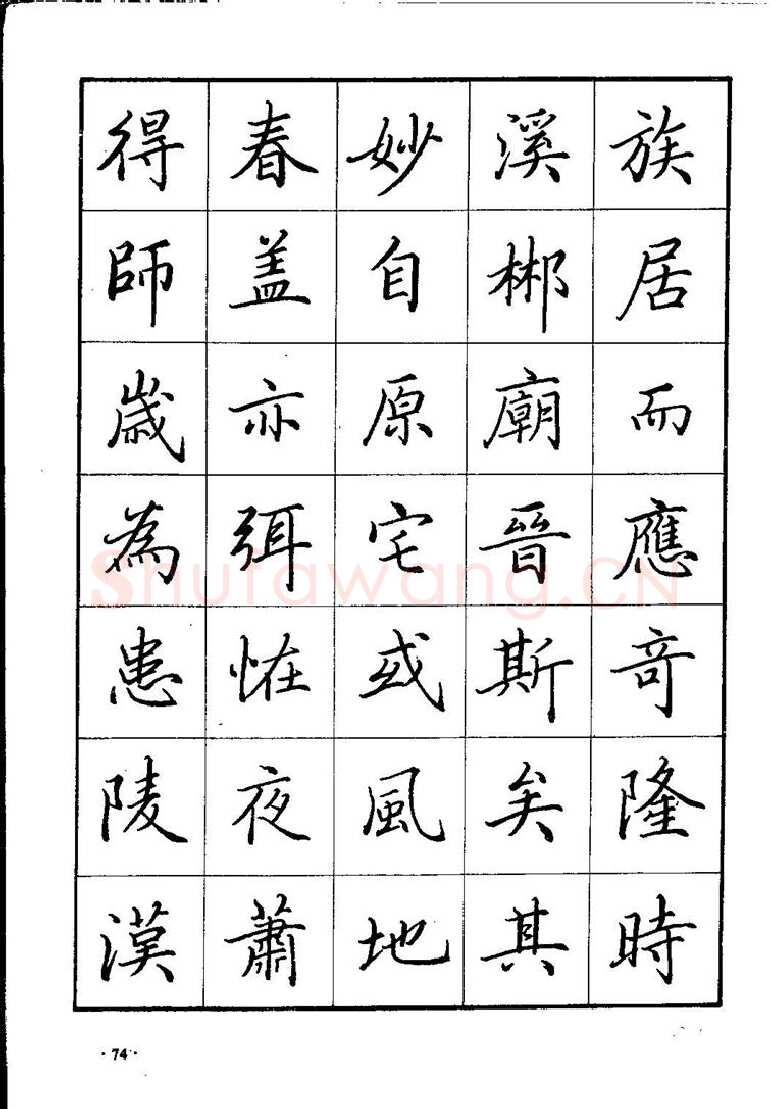 族居而應竒隆時
溪郴廟晉斯矣其
妙自原宅或風地
春盖亦弭恠夜蕭
得師歲為患陵漢
·74·
Shufawang.CN